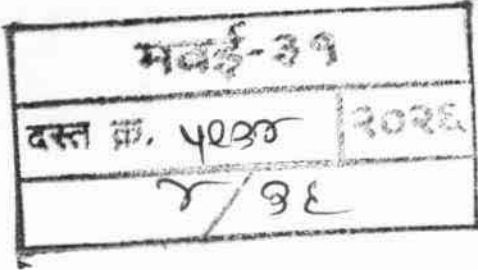 मवई-३१
दस्त क्र. २०२६
४/३६